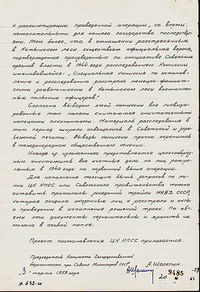 к расконспирации проведенной операции, со всеми
нежелательными для нашего государства последстви-
ями. Тем более, что в отношении расстрелянных
в Катынском лесу существует официальная версия,
подтвержденная произведенным по инициативе Советских
органов власти в 1944 году расследованием Комиссии,
именовавшейся: "Специальная комиссия по установле-
нию и расследованию расстрела немецко-фашистс-
кими захватчиками в Катынском лесу военноплен-
ных польских офицеров".
Согласно выводам этой комиссии все ликвидиро-
ванные там поляки считаются уничтоженными
немецкими оккупантами. Материалы расследования в
тот период широко освещались в Советской и зару-
бежной печати. Выводы комиссии прочно укрепились
в международном общественном мнении.
Исходя из изложенного представляется целесообраз-
ным уничтожить все учетные дела на лиц, расстре-
лянных в 1940 году по названной выше операции.
Для исполнения могущих быть запросов по ли-
нии ЦК КПСС или Советского правительства можно
оставить протоколы заседаний тройки НКВД СССР,
которая осудила указанных лиц к расстрелу и акты
о приведении в исполнение решений троек. По объ-
ему эти документы незначительны и хранить их
можно в особой папке.
Проект постановления ЦК КПСС прилагается.
Председатель Комитета Государственной
Безопасности при Совете Министров СССР А. Шелепин
3 марта 1959 года